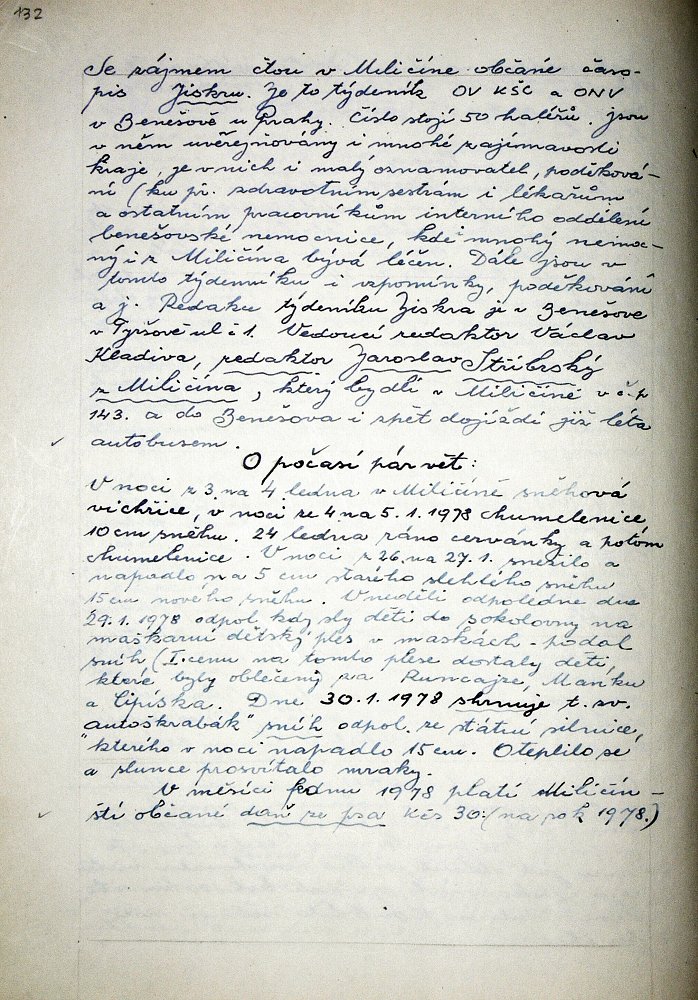 132
Se zájmem čtou v Miličíně občané časo-
pis Jiskru. Je to týdeník OV KŠČ a ONV
v Benešově u Prahy. Číslo stojí 50 haléřů. jsou
v něm uvěřejňovány i mnohé zajímavosti
kraje, je v nich i malý oznamovatel, poděková-
ní (ku př. zdravotním sestrám i lékařům
a ostatním pracovníkům interního oddělení
benešovské nemocnice, kde mnohý nemoc-
ný i z Miličína bývá léčen. Dále jsou v
tomto týdenníku i vzpomínky, poděkování
a j. Redakce týdeníku Jiskra je v Benešově
v Tyršově ul č 1. Vedoucí redaktor Václav
Kladiva, redaktor Jaroslav Stříbrský
z Miličína, který bydlí v Miličíně v č. p
143. a do Benešova i zpět dojíždí již léta
autobusem.
O počasí pár vět:
V noci z 3. na 4 ledna v Miličíně sněhová
vichřice, v noci ze 4 na 5. 1. 1978 chumelenice,
10 cm sněhu. 24 ledna ráno červánky a potom
chumelenice. V noci z 26. na 27. 1. sněžilo a
napadlo na 5 cm starého slehlého sněhu
15 cm nového sněhu. V neděli odpoledne dne
29. 1. 1978 odpol. kdy šly děti do sokolovny na
maškarní dětský ples v maskách - padal
sníh (I. cenu na tomto plese dostaly děti,
které byly oblečeny za Rumcajze, Manku
a Cipíska. Dne 30. 1. 1978 shrnuje t. zv.
"autoškrabák" sníh odpol. ze státní silnice,
kterého v noci napadlo 15 cm. Oteplilo se
a slunce prosvítalo mraky.
V měsíci lednu 1978 platí Miličín-
ští občané daň ze psa Kčs 30.- (na rok 1978.)